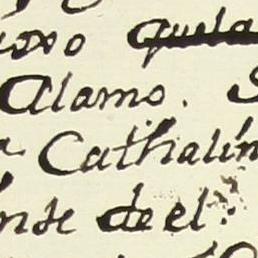 quela
Alamo. S
Cathalin
nse de el.